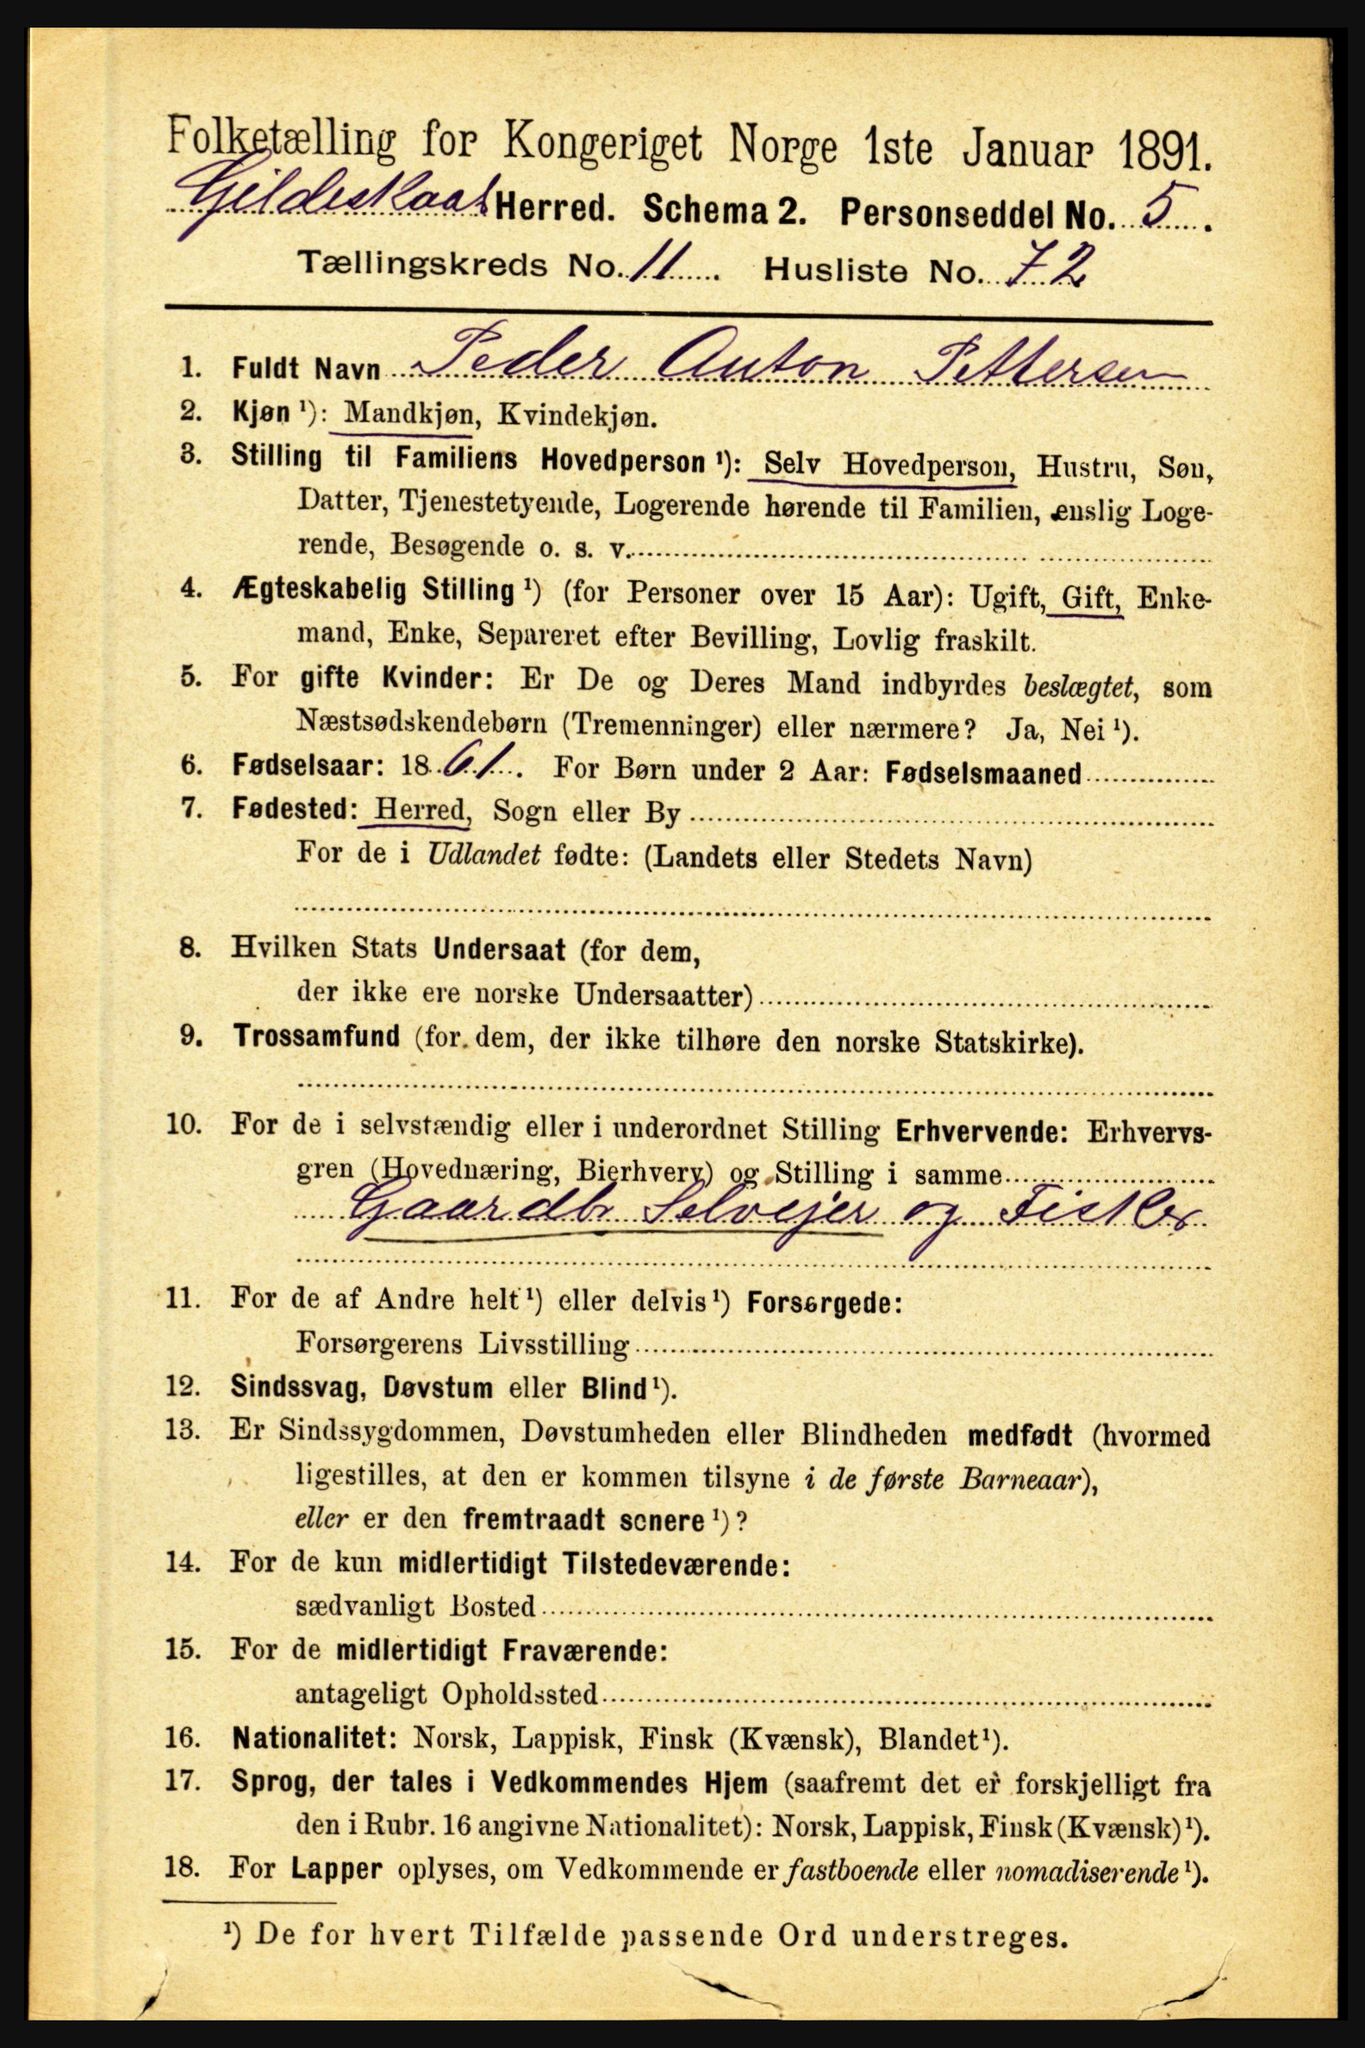 Folketælling for Kongeriget Norge 1ste Januar 1891.
Gildeskaal Herred. Schema 2. Personseddel No. 5.
Tællingskreds No. 11. Husliste No. 72
1. Fuldt Navn Peder Anton Pettersen
2. Kjøn ¹): Mandkjøn, Kvindekjøn.
3. Stilling til Familiens Hovedperson ¹): Selv Hovedperson, Hustru, Søn,
Datter, Tjenestetyende, Logerende hørende til Familien, enslig Loge-
rende, Besøgende o. s. v.
4. Ægteskabelig Stilling ¹) (for Personer over 15 Aar): Ugift, Gift, Enke-
mand, Enke, Separeret efter Bevilling, Lovlig fraskilt.
5. For gifte Kvinder: Er De og Deres Mand indbyrdes beslægtet, som
Næstsødskendebørn (Tremenninger) eller nærmere? Ja, Nei ¹).
6. Fødselsaar: 1861. For Børn under 2 Aar: Fødselsmaaned
7. Fødested: Herred, Sogn eller By
For de i Udlandet fødte: (Landets eller Stedets Navn)
8. Hvilken Stats Undersaat (for dem,
der ikke ere norske Undersaatter)
9. Trossamfund (for dem, der ikke tilhøre den norske Statskirke).
10. For de i selvstændig eller i underordnet Stilling Erhvervende: Erhvervs-
gren (Hovednæring, Bierhverv) og Stilling i samme
Gaardbr Selvejer og Fisker
11. For de af Andre helt ¹) eller delvis ¹) Forsørgede:
Forsørgerens Livsstilling
12. Sindssvag, Døvstum eller Blind ¹).
13. Er Sindssygdommen, Døvstumheden eller Blindheden medfødt (hvormed
ligestilles, at den er kommen tilsyne i de første Barneaar),
eller er den fremtraadt senere ¹)?
14. For de kun midlertidigt Tilstedeværende:
sædvanligt Bosted
15. For de midlertidigt Fraværende:
antageligt Opholdssted
16. Nationalitet: Norsk, Lappisk, Finsk (Kvænsk), Blandet ¹).
17. Sprog, der tales i Vedkommendes Hjem (saafremt det er forskjelligt fra
den i Rubr. 16 angivne Nationalitet): Norsk, Lappisk, Finsk (Kvænsk) ¹).
18. For Lapper oplyses, om Vedkommende er fastboende eller nomadiserende ¹).
¹) De for hvert Tilfælde passende Ord understreges.